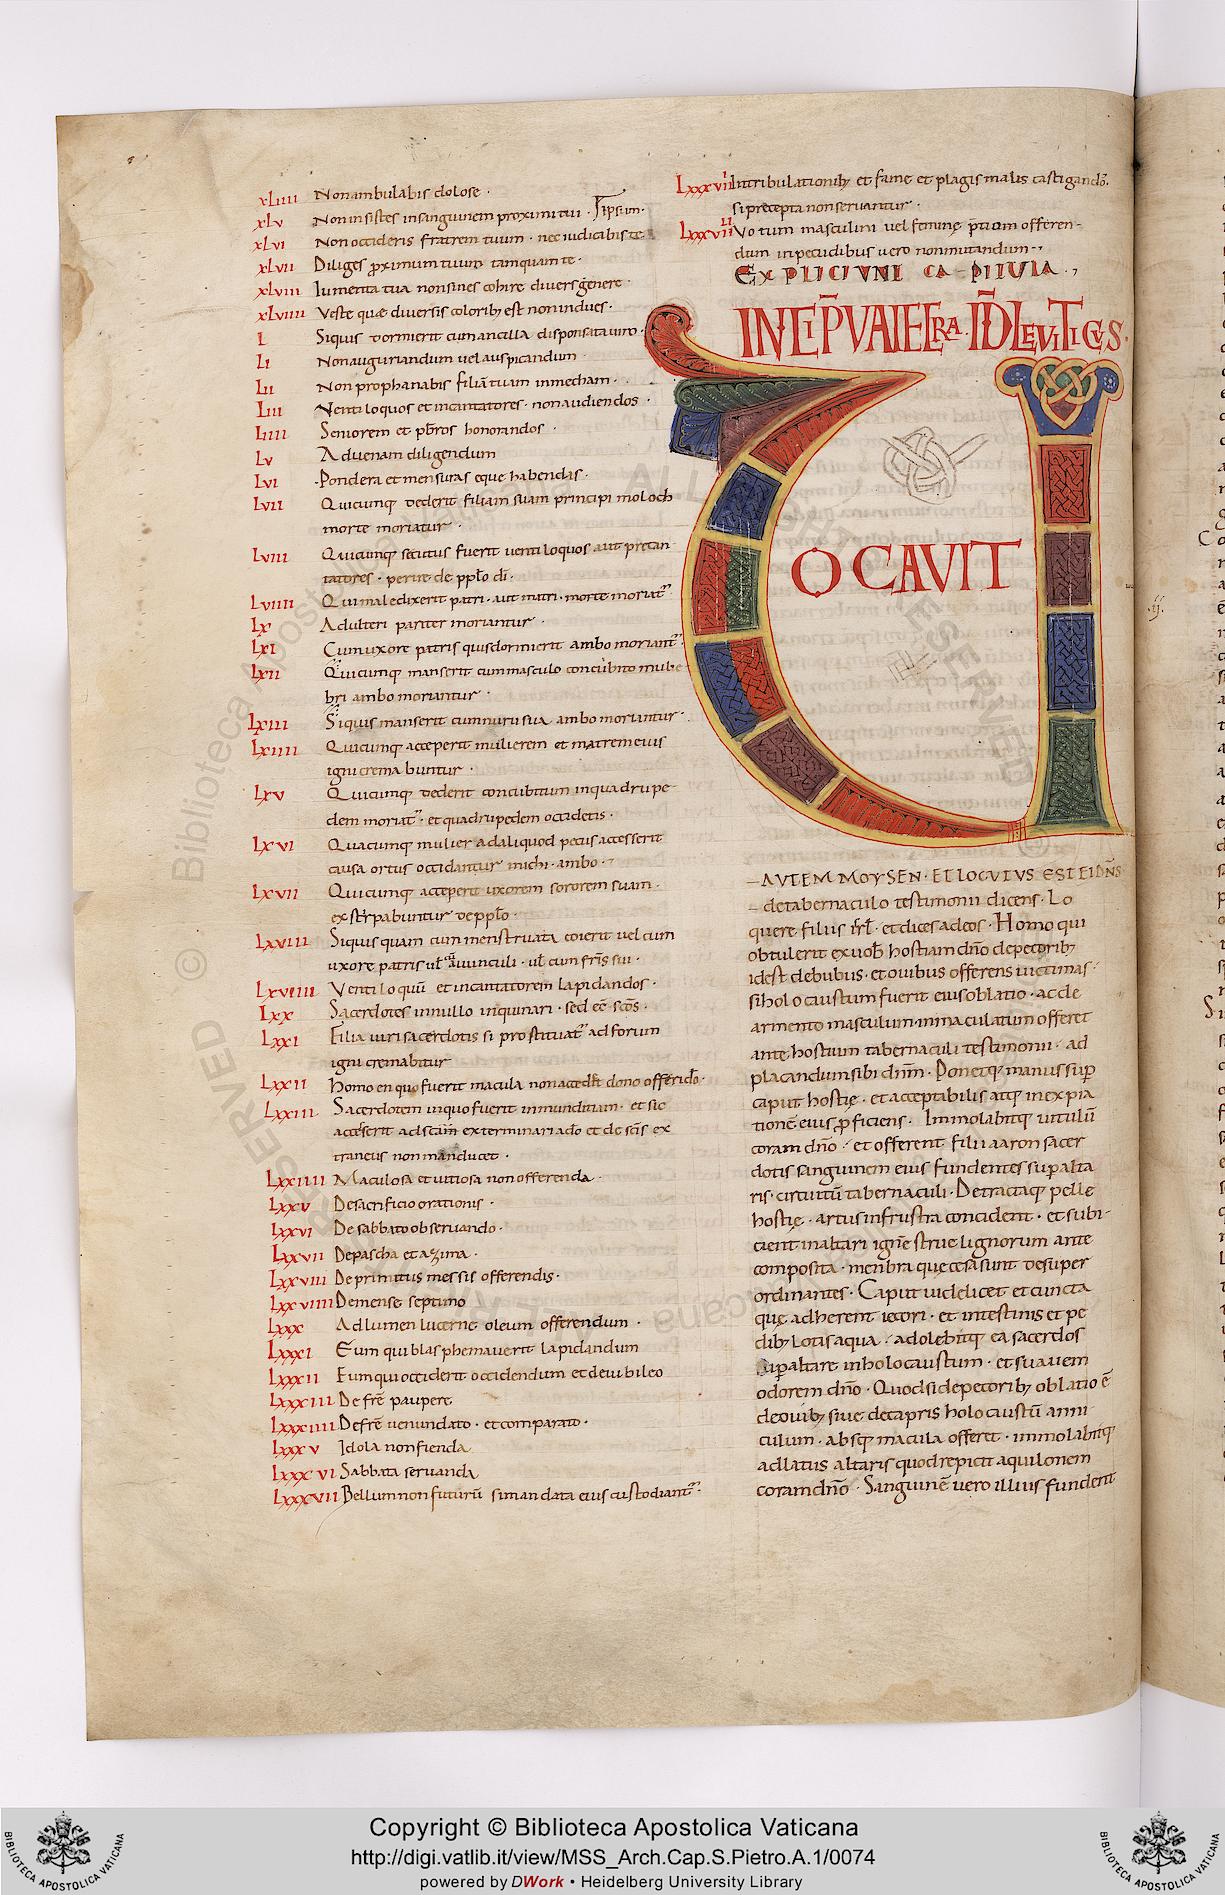 xLiiii Non ambulabis dolose ·
xLv Non insistes in sanguinem proximi tui · ipsum ·
xLvi Non occideris fratrem tuum · nec iudicabis te
xLvii Diliges proximum tuum tamquam te ·
xLviii Iumenta tua non sines cohire diversi genere ·
xLviiii Veste que diversis coloribus est non indues ·
L Siquis dormierit cum ancilla disponsata viro ·
Li Non auguriandum vel auspicandum ·
Lii Non prophanabis filiā tuam in mecham ·
Liii Ventiloquos et incantatores · non audiendos ·
Liiii Seniorem et pbr̄os honorandos ·
Lv Advenam diligendum
Lvi Pondera et mensuras eque habendas ·
Lvii Quicumq; dederit filiam suam principi moloch
morte moriatur ·
Lviii Quicumq; secutus fuerit ventiloquos aut precan
tatores · periit de pplo di ·
Lviiii Qui maledixerit patri · aut matri · morte moriat̄
Lx Adulteri pariter moriantur ·
Lxi Cum uxore patris qui sdormierit ambo moriant̄ ·
Lxii Quicumq; manserit cum masculo concubito mulie
bri ambo moriantur ·
Lxiii Siquis manserit cum nuru sua ambo moriantur ·
Lxiiii Quicumq; acceperit mulierem et matrem eius
igni cremabuntur ·
Lxv Quicumq; dederit concubitum in quadrupe
dem moriat̄ · et quadrupedem occidetis ·
Lxvi Quacumq; mulier ad aliquod pecus accesserit
causa ortus occidantur michi · ambo ·
Lxvii Quicumq; acceperit uxorem sororem suam ·
exsterpabuntur de pplo ·
Lxviii Siquis quam cum menstruata coierit vel cum
uxore patris ul avunculi · ul cum fr̄is sui ·
Lxviiii Ventiloquū et incantatorem lapidandos ·
Lxx Sacerdotes in nullo inquinari · sed eē scōs ·
Lxxi Filia viri sacerdotis si prostituat̄ ad forum
igni cremabitur
Lxxii Homo en quo fuerit macula non accedat dono offerido ·
Lxxiii Sacerdotem in quo fuerit inmunditiam · et sic
accesserit ad scām exterminari a do et de scīs ex
traneus non manducet ·
Lxxiiii Maculosa et vitiosa non offerenda ·
Lxxv De sacrificio orationis ·
Lxxvi De sabbato observando ·
Lxxvii De pascha et azima ·
Lxxviii De primitiis messis offerendis ·
Lxxviiii De mense septimo
Lxxx Ad lumen lucerne oleum offerendum ·
Lxxxi Eum qui blasphemaverit lapidandum
Lxxxii Eum qui occiderit occidendum et de iubileo
Lxxxiii De fr̄e paupere
Lxxxiiii De fr̄e venundato · et comparato ·
Lxxxv Idola non fienda
Lxxxvi Sabbata servanda
Lxxxvii Bellum non futurū si mandata eius custodiant̄ ·
Lxxxvii In tribulationib; et fame et plagis malis castigandō ·
si precepta non servantur ·
Lxxxvii Votum masculini vel femine p̄tium offeren-
dum in pecudibus vero non mutandum ·
EXPLICIUNT CAPITULA ·
INCIP̄ VAIECRA · ID LEVITICUS ·
U OCAVIT
AUTEM MOYSEN · ET LOCUTUS EST EI DN̄S
de tabernaculo testimonii dicens · Lo
quere filiis isrl · et dices ad eos · Homo qui
obtulerit ex vob̄ hostiam dn̄o de pecorib;
id est de bubus · et ovibus offerens victimas ·
si holocaustum fuerit eius oblatio · ac de
armento masculum inmaculatum offeret
ante hostium tabernaculi testimonii · ad
placandum sibi dn̄m · Ponetq; manus sup
caput hostię · et acceptabilis atq; in expia
tionē eius p̄ficiens · Immolabitq; vitulū
coram dn̄o · et offerent filii aaron sacer
dotis sanguinem eius fundentes sup alta
ris · circuitū tabernaculi · Detractaq; pelle
hostię · artus in frustra concident · et subi-
cient in altari ignē strue lignorum ante
composita · menbra que cesa sunt desuper
ordinantes · Caput videlicet et cuncta
que adherent iecori · et intestinis et pe
dib; lotis aqua · adolebitq; ea sacerdos
sup altare in holocaustum · et suavem
odorem dn̄o · Quod si de pecorib; oblatio ē
de ovib; sive de capris holocaustū anni
culum · absq; macula offeret · immolabitq;
ad latus altaris quod respicit aquilonem
coram dn̄o · Sanguinē vero illius fundent
Copyright © Biblioteca Apostolica Vaticana
http://digi.vatlib.it/view/MSS_Arch.Cap.S.Pietro.A.1/0074
powered by DWork • Heidelberg University Library